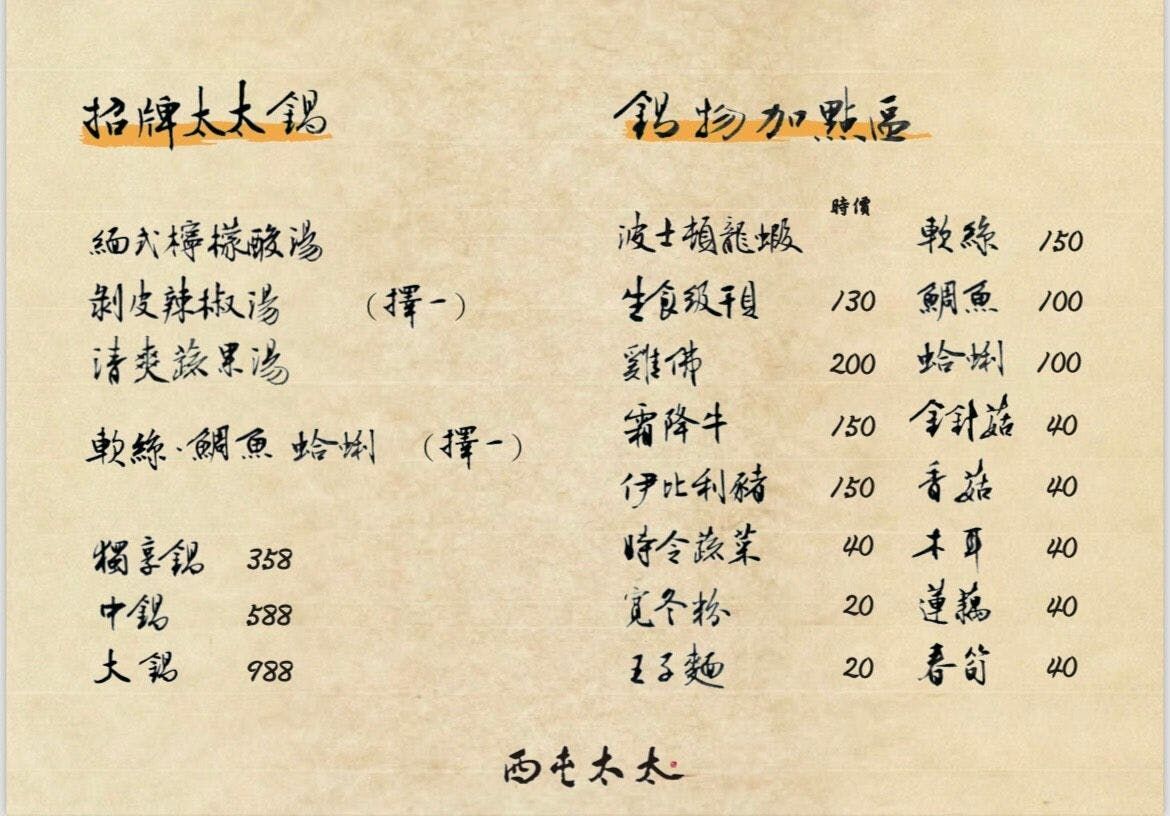 招牌太太鍋
緬式檸檬酸湯
剝皮辣椒湯 (擇一)
清爽蔬果湯
軟絲·鯛魚 蛤蜊 (擇一)
獨享鍋 358
中鍋 588
大鍋 988
鍋物加點區
波士頓龍蝦 時價
生食級干貝 130
雞佛 200
霜降牛 150
伊比利豬 150
時令蔬菜 40
寬冬粉 20
王子麵 20
軟絲 150
鯛魚 100
蛤蜊 100
金針菇 40
香菇 40
木耳 40
蓮藕 40
春筍 40
西屯太太